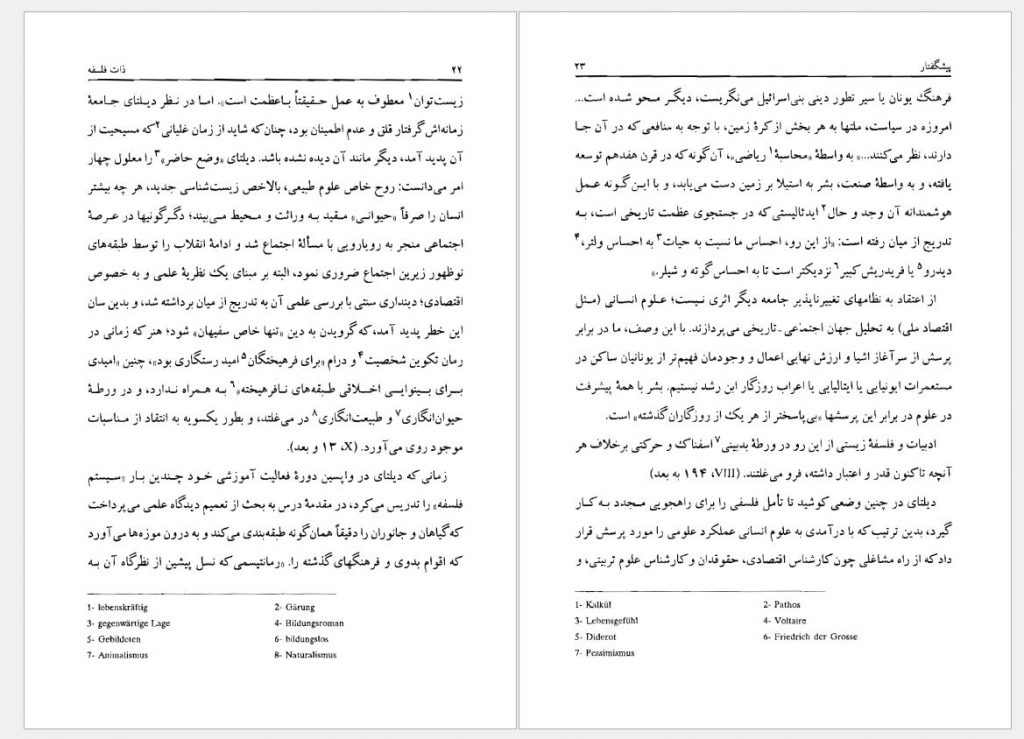 ۲۲ ذات فلسفه
زیست‌توان۱ معطوف به عمل حقیقتاً باعظمت است». اما در نظر دیلتای جامعهٔ
زمانه‌اش گرفتار قلق و عدم اطمینان بود، چنان‌که شاید از زمان غلیانی۲ که مسیحیت از
آن پدید آمد، دیگر مانند آن دیده نشده باشد. دیلتای «وضع حاضر»۳ را معلول چهار
امر می‌دانست: روح خاص علوم طبیعی، بالاخص زیست‌شناسی جدید، هر چه بیشتر
انسان را صرفاً «حیوانی» مقید به وراثت و محیط می‌بیند؛ دگرگونیها در عرصهٔ
اجتماعی منجر به رویارویی با مسألهٔ اجتماع شد و ادامهٔ انقلاب را توسط طبقه‌های
نوظهور زیرین اجتماع ضروری نمود، البته بر مبنای یک نظریهٔ علمی و به خصوص
اقتصادی؛ دینداری سنتی با بررسی علمی آن به تدریج از میان برداشته شد، و بدین سان
این خطر پدید آمد، که گرویدن به دین «تنها خاص سفیهان» شود؛ هنر که زمانی در
رمان تکوین شخصیت۴ و درام «برای فرهیختگان۵ امید رستگاری بود»، چنین «امیدی
برای بینوایی اخلاقی طبقه‌های نافرهیخته»۶ به همراه ندارد، و در ورطهٔ
حیوان‌انگاری۷ و طبیعت‌انگاری۸ در می‌غلتد، و بطور یکسویه به انتقاد از مناسبات
موجود روی می‌آورد. (X، ۱۳ و بعد).
زمانی که دیلتای در واپسین دورهٔ فعالیت آموزشی خود چندین بار «سیستم
فلسفه» را تدریس می‌کرد، در مقدمهٔ درس به بحث از تعمیم دیدگاه علمی می‌پرداخت
که گیاهان و جانوران را دقیقاً همان‌گونه طبقه‌بندی می‌کند و به درون موزه‌ها می‌آورد
که اقوام بدوی و فرهنگهای گذشته را. «رمانتیسمی که نسل پیشین از نظرگاه آن به
1- lebenskräftig 2- Gärung
3- gegenwärtige Lage 4- Bildungsroman
5- Gebildeten 6- bildungslos
7- Animalismus 8- Naturalismus
پیشگفتار ۲۳
فرهنگ یونان یا سیر تطور دینی بنی‌اسرائیل می‌نگریست، دیگر محو شده است...
امروزه در سیاست، ملتها به هر بخش از کرهٔ زمین، با توجه به منافعی که در آن جا
دارند، نظر می‌کنند...» به واسطهٔ «محاسبهٔ۱ ریاضی»، آن‌گونه که در قرن هفدهم توسعه
یافته، و به واسطهٔ صنعت، بشر به استیلا بر زمین دست می‌یابد، و با این‌گونه عمل
هوشمندانه آن وجد و حال۲ ایدئالیستی که در جستجوی عظمت تاریخی است، به
تدریج از میان رفته است: «از این رو، احساس ما نسبت به حیات۳ به احساس ولتر،۴
دیدرو۵ یا فریدریش کبیر۶ نزدیکتر است تا به احساس گوته و شیلر.»
از اعتقاد به نظامهای تغییرناپذیر جامعه دیگر اثری نیست؛ علوم انسانی (مثل
اقتصاد ملی) به تحلیل جهان اجتماعی-تاریخی می‌پردازند. با این وصف، ما در برابر
پرسش از سرآغاز اشیا و ارزش نهایی اعمال و وجودمان فهیم‌تر از یونانیان ساکن در
مستعمرات ایونیایی یا ایتالیایی یا اعراب روزگار ابن رشد نیستیم. بشر با همهٔ پیشرفت
در علوم در برابر این پرسشها «بی‌پاسختر از هر یک از روزگاران گذشته» است.
ادبیات و فلسفهٔ زیستی از این رو در ورطهٔ بدبینی۷ اسفناک و حرکتی برخلاف هر
آنچه تاکنون قدر و اعتبار داشته، فرو می‌غلتند. (VIII، ۱۹۴ به بعد)
دیلتای در چنین وضعی کوشید تا تأمل فلسفی را برای راهجویی مجدد به کار
گیرد، بدین ترتیب که با درآمدی به علوم انسانی عملکرد علومی را مورد پرسش قرار
داد که از راه مشاغلی چون کارشناس اقتصادی، حقوقدان و کارشناس علوم تربیتی، و
1- Kalkül 2- Pathos
3- Lebensgefühl 4- Voltaire
5- Diderot 6- Friedrich der Grosse
7- Pessimismus